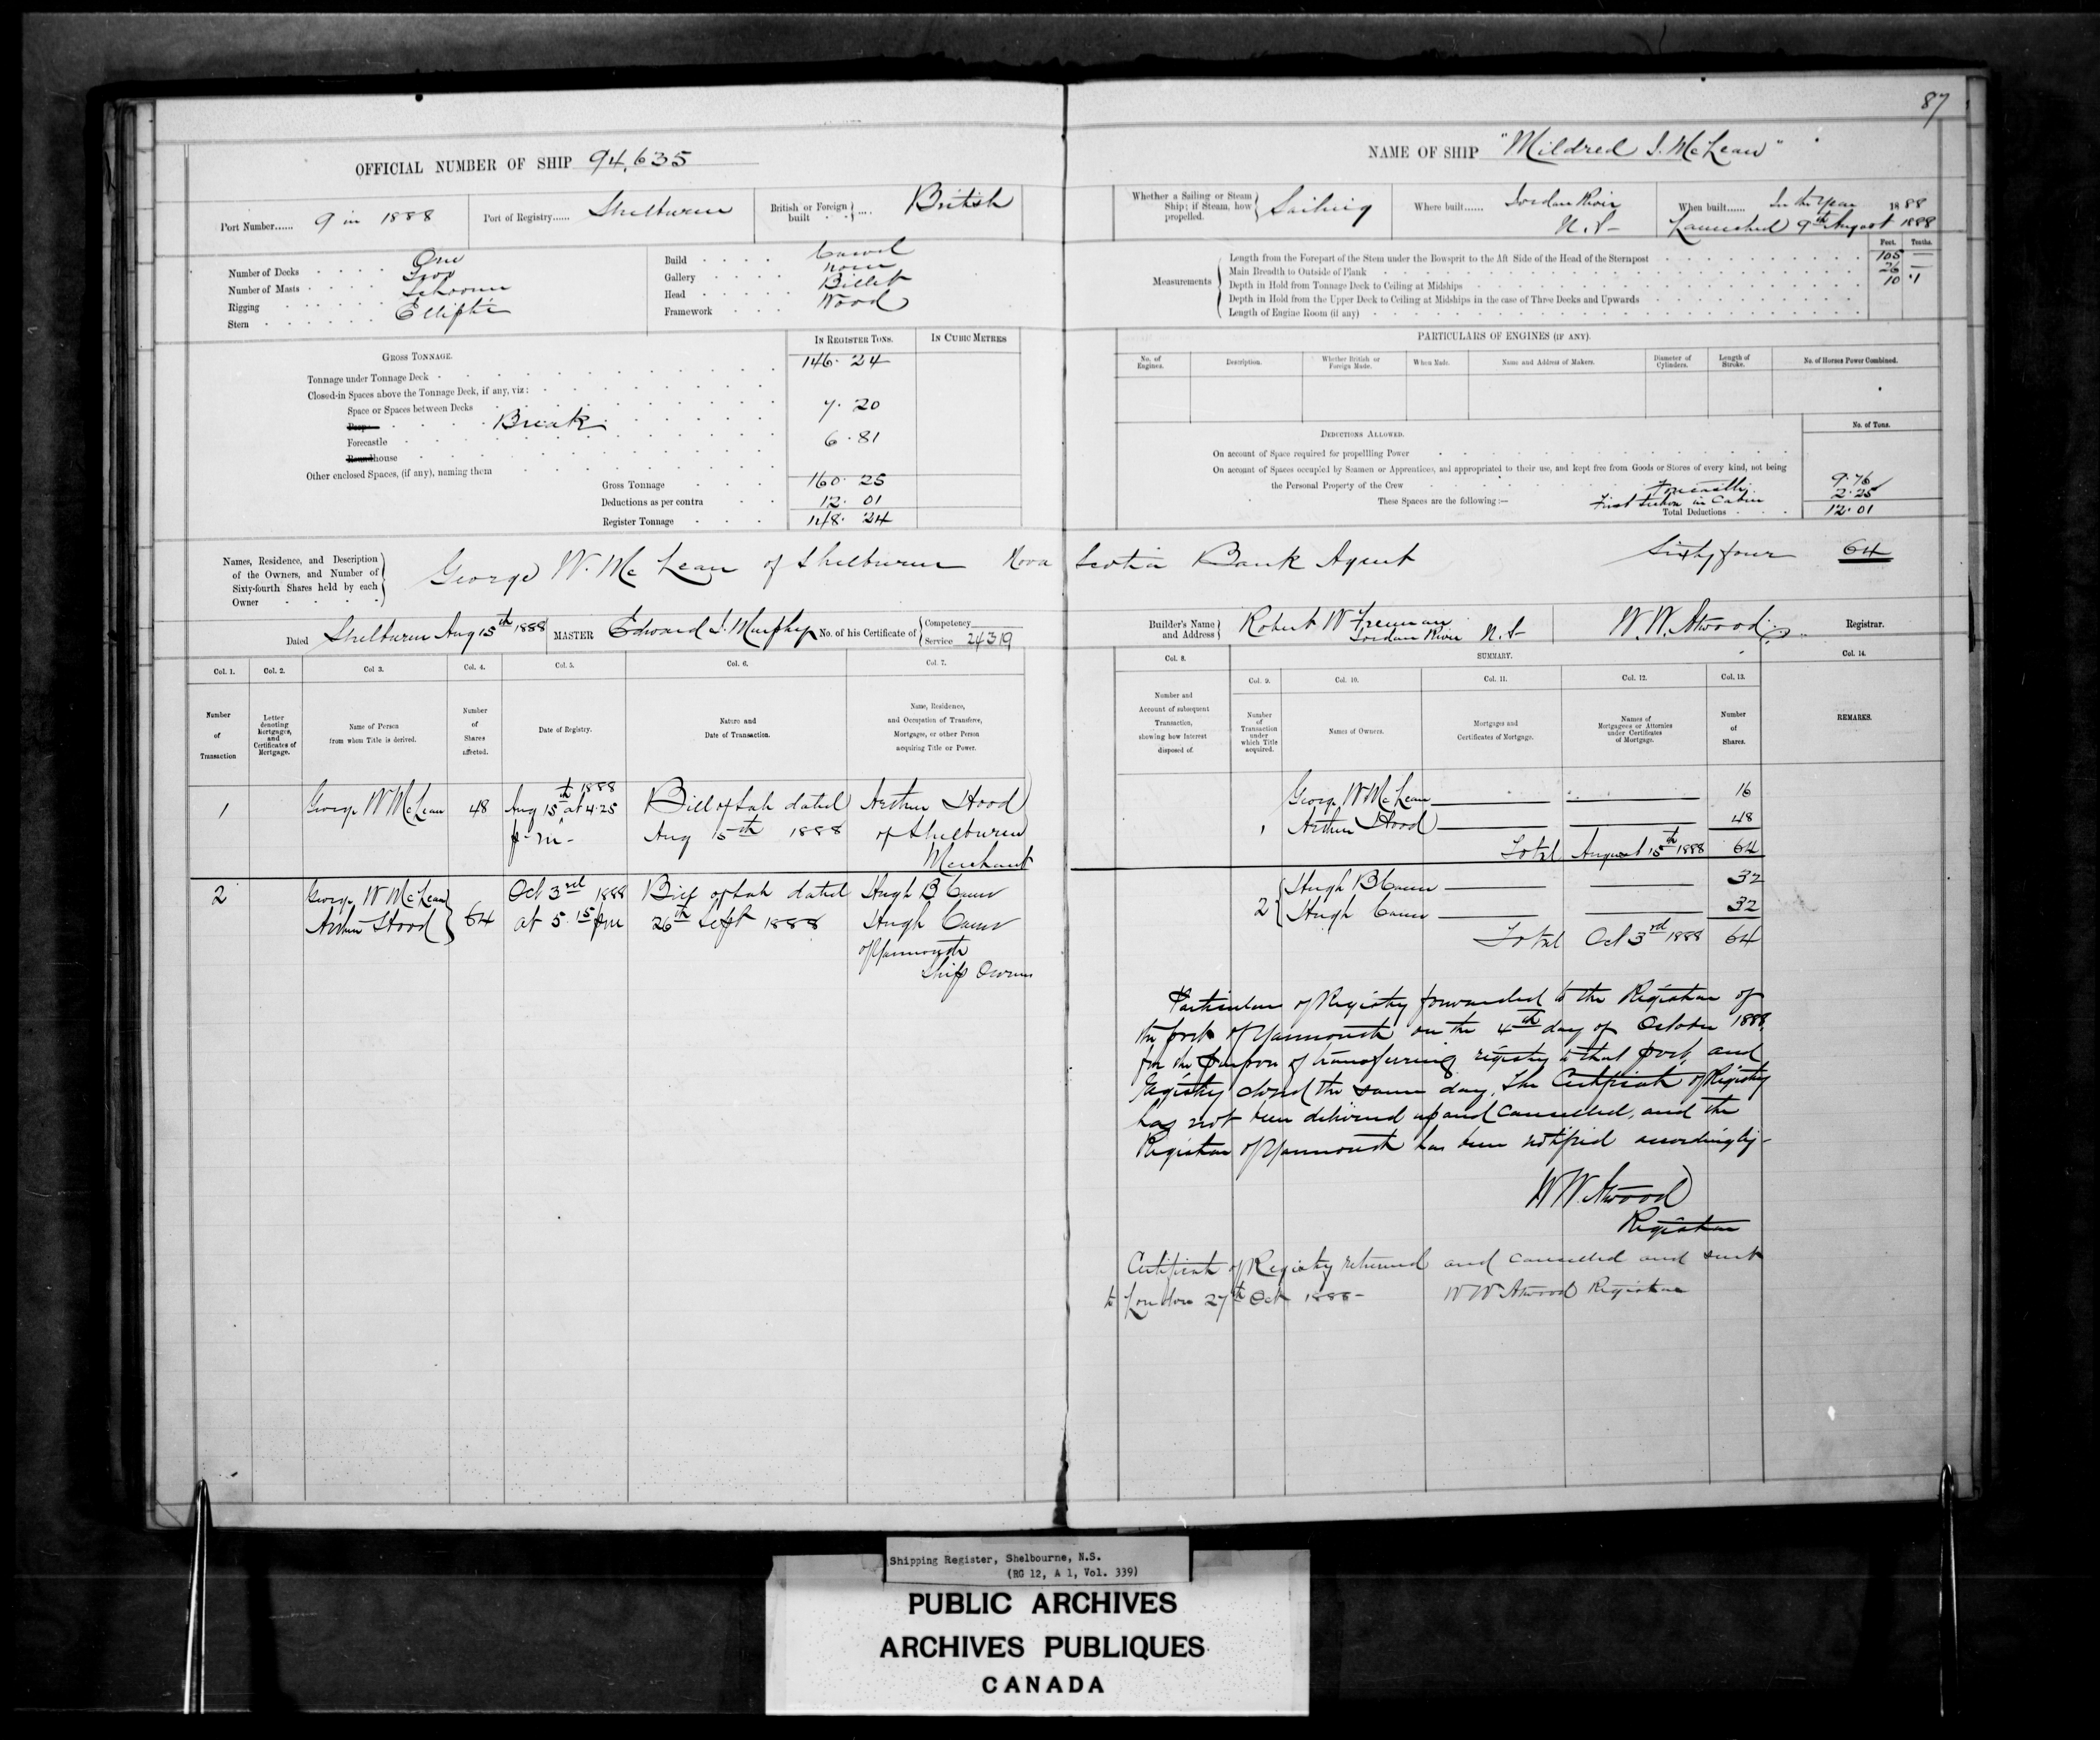 87
OFFICIAL NUMBER OF SHIP 94,635
NAME OF SHIP "Mildred J. McLean"
Port Number...... 9 in 1888
Port of Registry...... Shelburne
British or Foreign built .... British
Whether a Sailing or Steam Ship; if Steam, how propelled. Sailing
Where built...... Jordan River N.S.
When built...... In the Year 1888
Launched 9th August 1888
Number of Decks One
Number of Masts Two
Rigging Schooner
Stern Elliptic
Build Carvel
Gallery none
Head Billet
Framework Wood
Measurements
Feet. Tenths.
Length from the Forepart of the Stem under the Bowsprit to the Aft Side of the Head of the Sternpost 105 —
Main Breadth to Outside of Plank 26 —
Depth in Hold from Tonnage Deck to Ceiling at Midships 10 .1
Depth in Hold from the Upper Deck to Ceiling at Midships in the case of Three Decks and Upwards
Length of Engine Room (if any)
GROSS TONNAGE.
IN REGISTER TONS.
IN CUBIC METRES
Tonnage under Tonnage Deck 146. 24
Closed-in Spaces above the Tonnage Deck, if any, viz:
Space or Spaces between Decks
Poop Break 7. 20
Forecastle 6. 81
Roundhouse
Other enclosed Spaces, (if any), naming them
Gross Tonnage 160. 25
Deductions as per contra 12. 01
Register Tonnage 148. 24
PARTICULARS OF ENGINES (IF ANY).
No. of Engines.
Description.
Whether British or Foreign Made.
When Made.
Name and Address of Makers.
Diameter of Cylinders.
Length of Stroke.
No. of Horses Power Combined.
DEDUCTIONS ALLOWED.
No. of Tons.
On account of Space required for propelling Power
On account of Spaces occupied by Seamen or Apprentices, and appropriated to their use, and kept free from Goods or Stores of every kind, not being
the Personal Property of the Crew
These Spaces are the following:—
Forecastle 9.76
in Cabin 2.25
Total Deductions 12.01
Names, Residence, and Description of the Owners, and Number of Sixty-fourth Shares held by each Owner
George W. McLean of Shelburne Nova Scotia Bank Agent Sixty four 64
Dated Shelburne Aug 15th 1888
MASTER Edward J. Murphy
No. of his Certificate of Competency
Service 24319
Builder's Name and Address Robert W Freeman Jordan River N.S.
W. W. Atwood Registrar.
Col. 1. Col. 2. Col 3. Col. 4. Col. 5. Col. 6. Col. 7.
Number of Transaction
Letter denoting Mortgages, and Certificates of Mortgage.
Name of Person from whom Title is derived.
Number of Shares affected.
Date of Registry.
Nature and Date of Transaction.
Name, Residence, and Occupation of Transferee, Mortgagee, or other Person acquiring Title or Power.
Col. 8.
SUMMARY.
Col. 9. Col. 10. Col. 11. Col. 12. Col. 13.
Col. 14.
Number and Account of subsequent Transaction, showing how Interest disposed of.
Number of Transaction under which Title acquired.
Names of Owners.
Mortgages and Certificates of Mortgage.
Names of Mortgagees or Attornies under Certificates of Mortgage.
Number of Shares.
REMARKS.
1 George W McLean 48 Aug 15th 1888 at 4.25 p.m. Bill of Sale dated Aug 15th 1888 Arthur Hood of Shelburne Merchant
2 George W McLean Arthur Hood 64 Oct 3rd 1888 at 5.15 pm Bill of Sale dated 26th Sept 1888 Hugh B Cann Hugh Cann of Yarmouth Ship Owners
George W McLean 16
1 Arthur Hood 48
Total August 15th 1888 64
2 Hugh B Cann 32
Hugh Cann 32
Total Oct 3rd 1888 64
Particulars of Registry forwarded to the Registrar of
the port of Yarmouth on the 4th day of October 1888
for the purpose of transferring registry to that port, and
Registry closed the same day. The Certificate of Registry
has not been delivered up and cancelled, and the
Registrar of Yarmouth has been notified accordingly-
W W. Atwood
Registrar
Certificate of Registry returned and cancelled and sent
to London 27th Oct 1888- W W Atwood Registrar
Shipping Register, Shelbourne, N.S.
(RG 12, A 1, Vol. 339)
PUBLIC ARCHIVES
ARCHIVES PUBLIQUES
CANADA